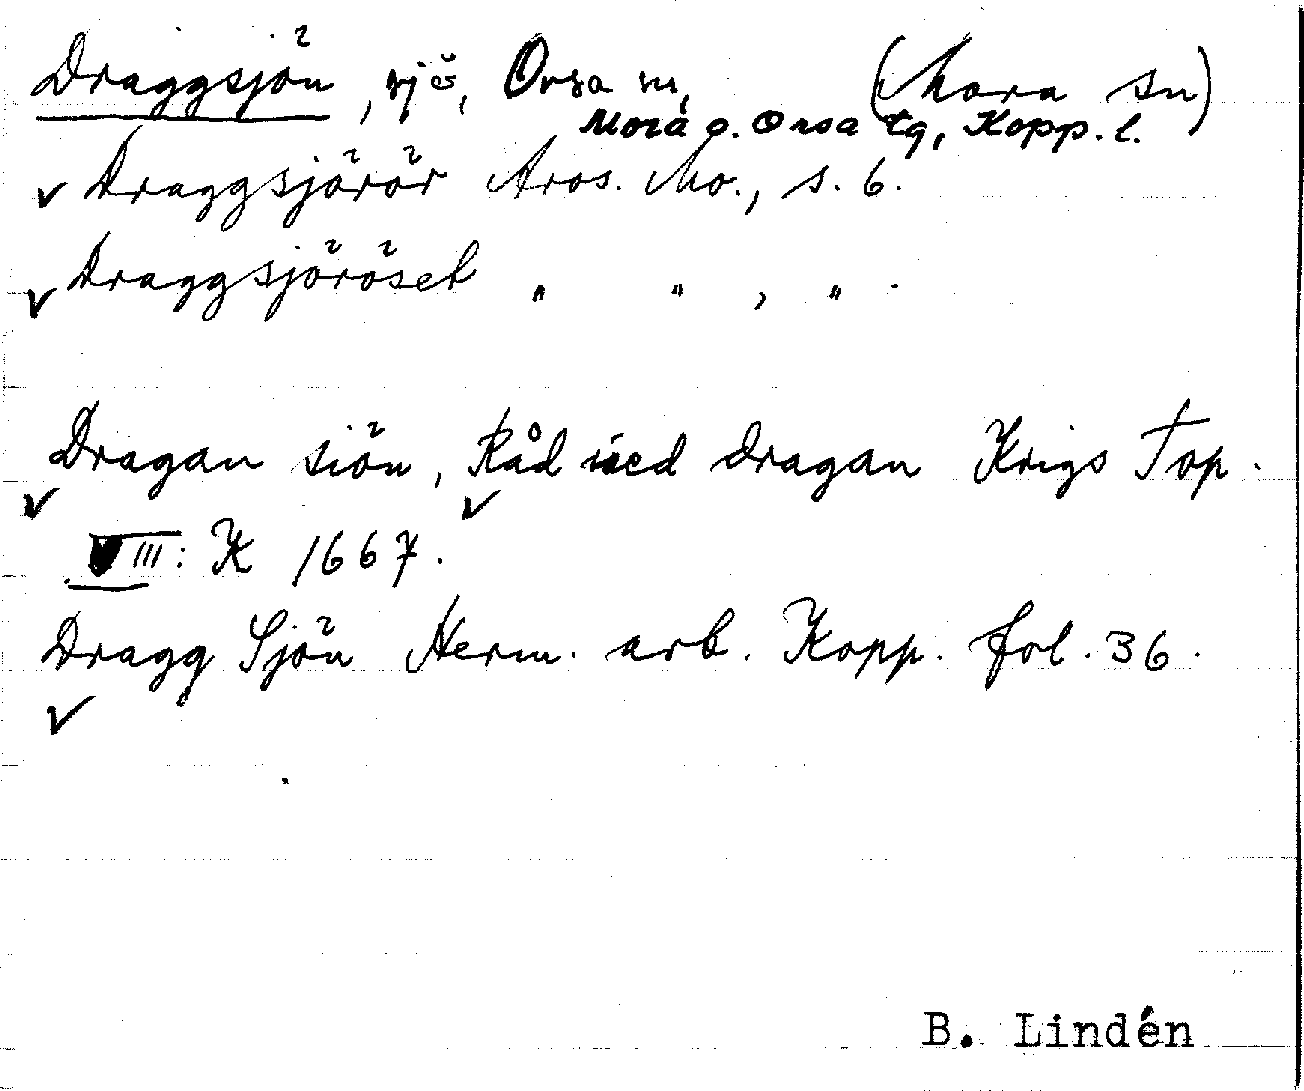 Draggsjön, sjö, Orsa sn, (Mora sn)
Mora o. Orsa tg, Kopp. l.
✓ Draggsjörör Aros. Mo., s. 6.
✓ Draggsjöröset " " , " .
Dragan siön, Råd wed Dragan Krigs Top.
✓ ✓
VIII: K 1667.
Dragg Sjön Herm. arb. Kopp. fol. 36.
✓
B. Lindén